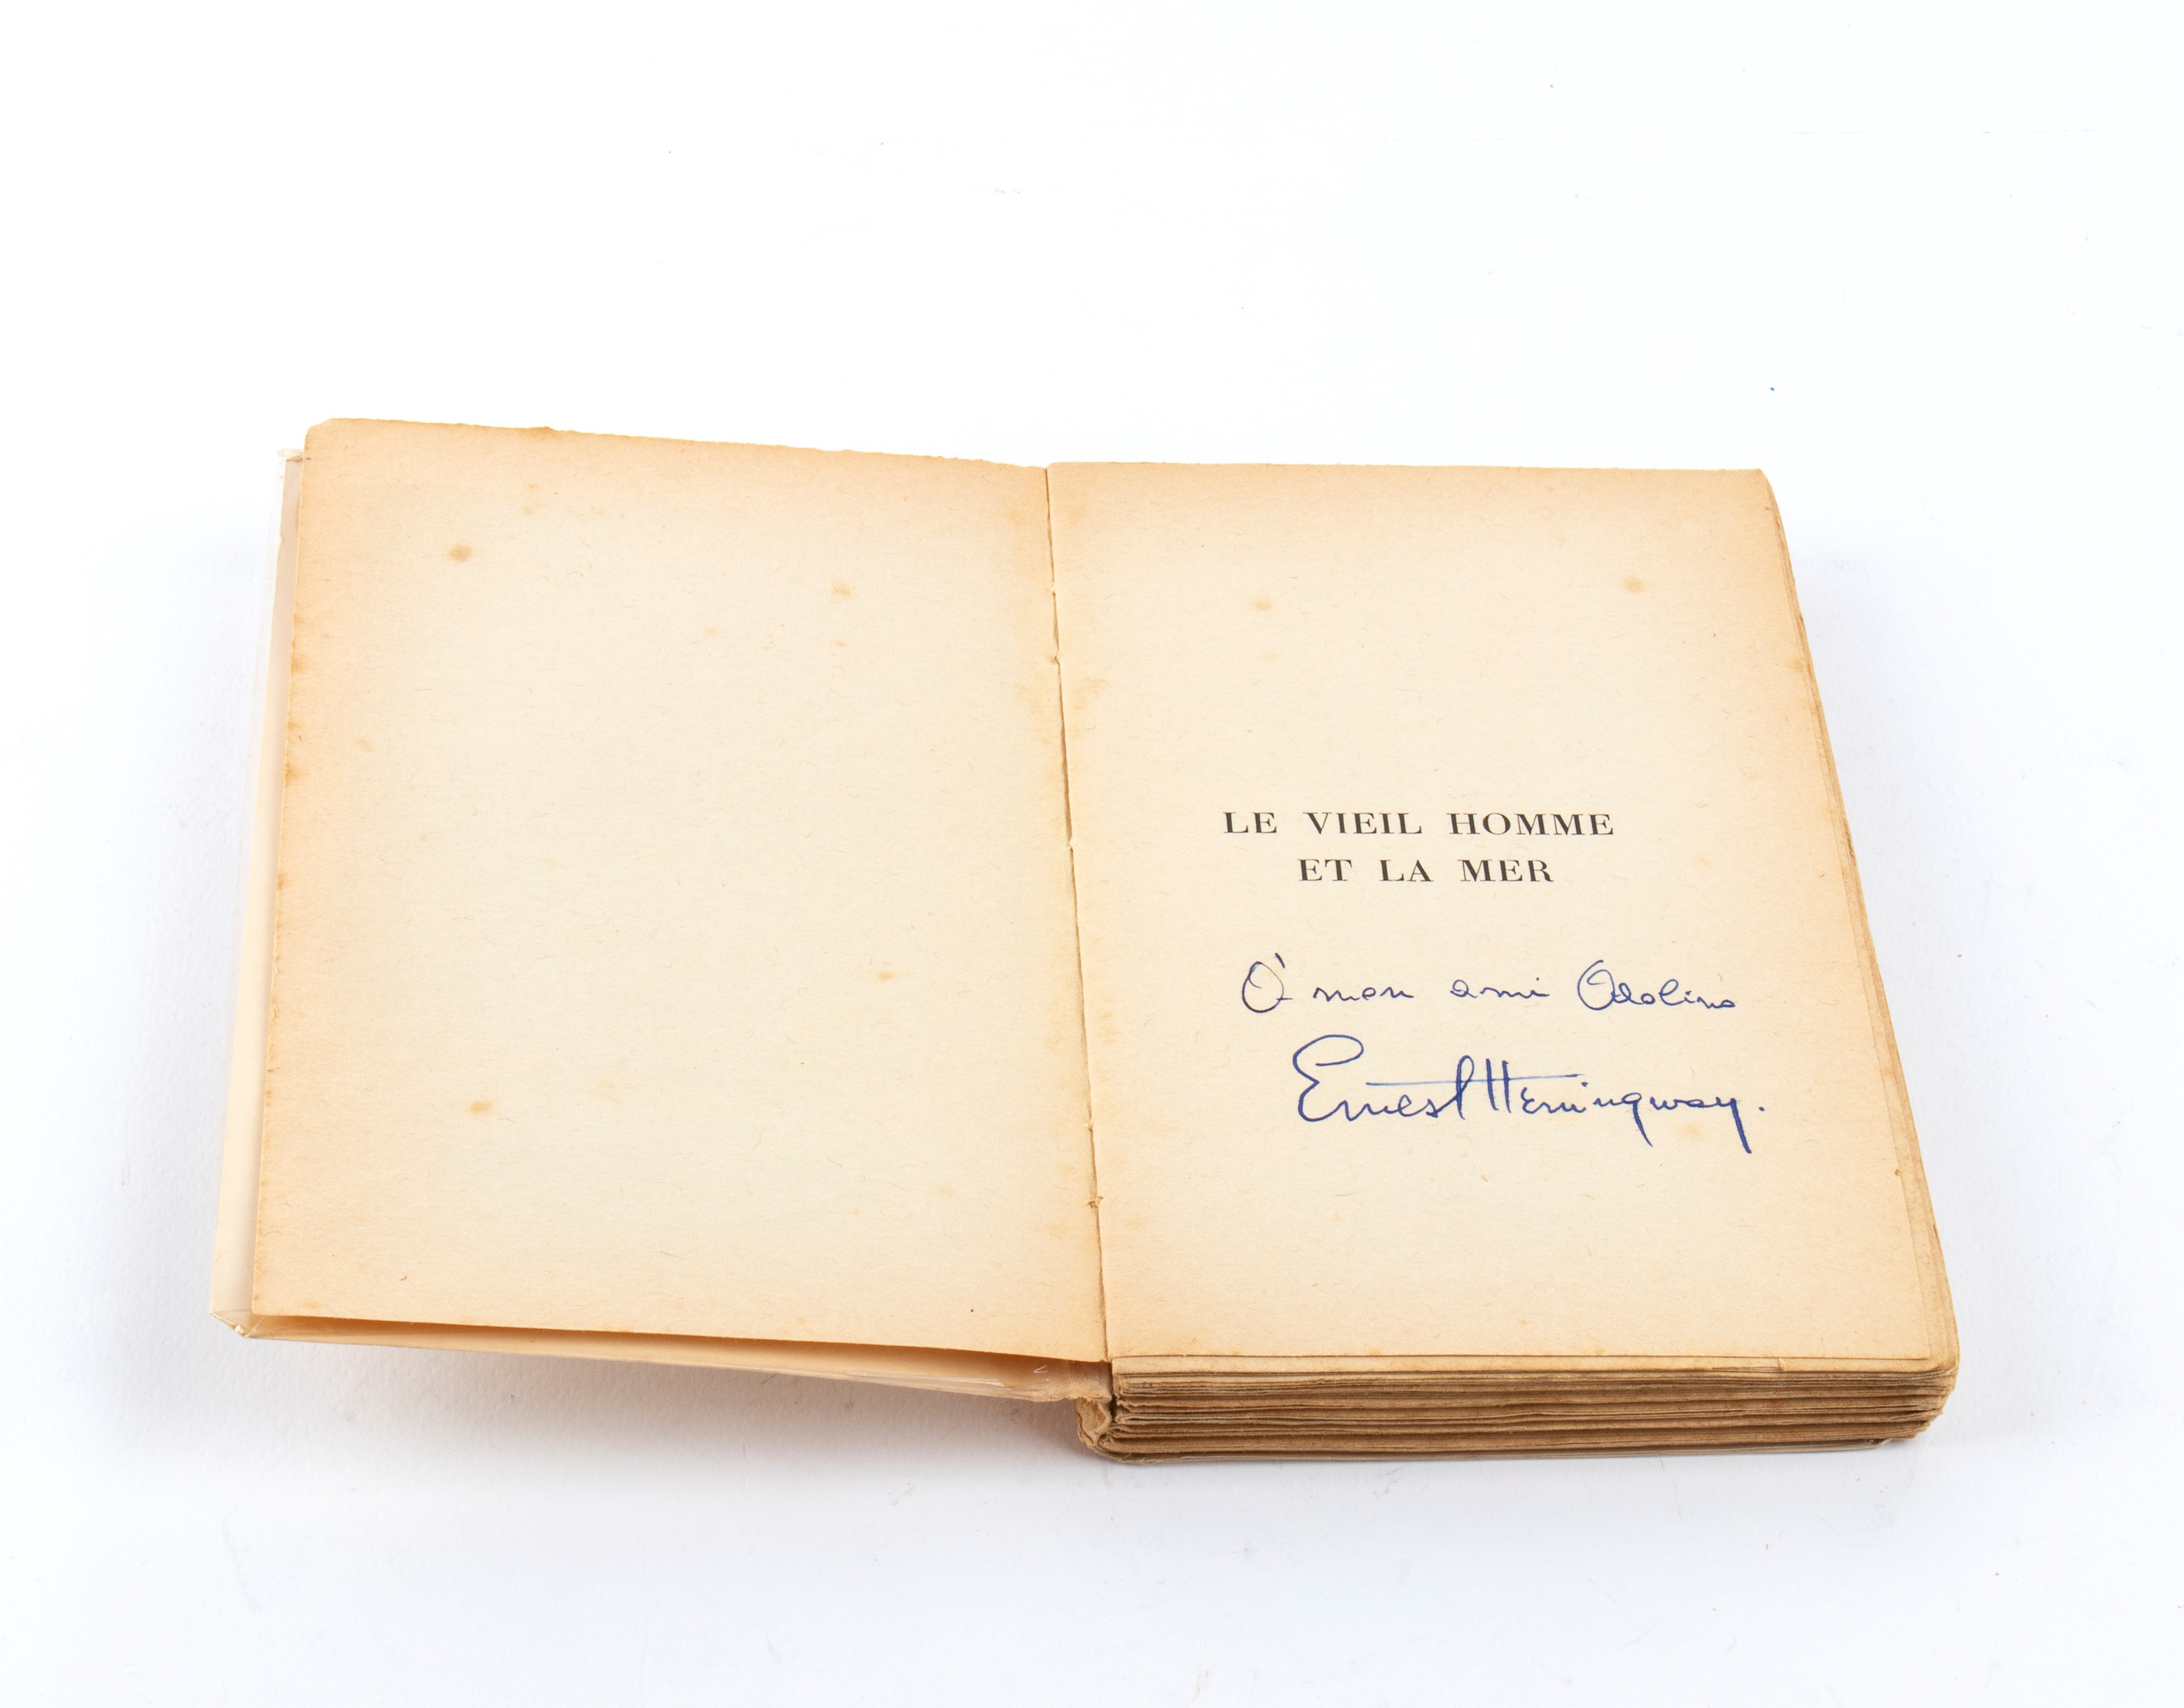 LE VIEIL HOMME
ET LA MER
À mon ami
Ernest Hemingway.